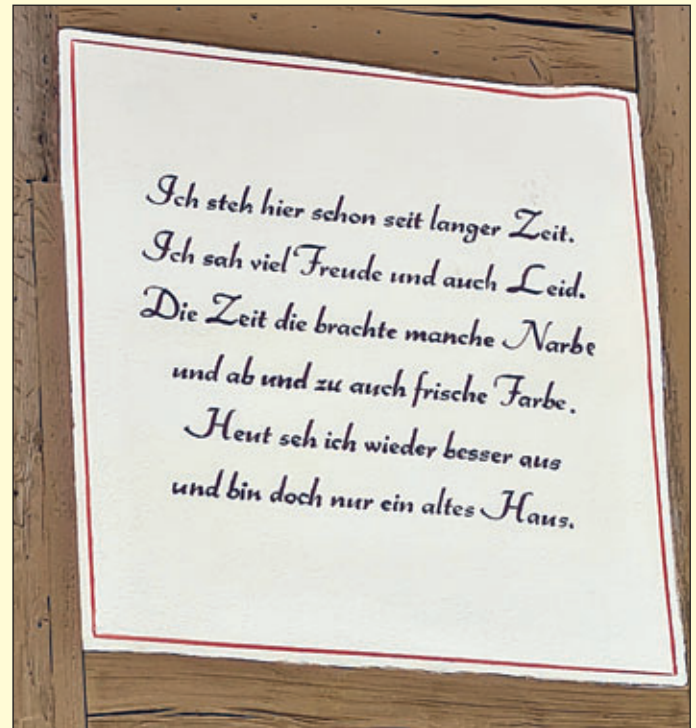 Ich steh hier schon seit langer Zeit.
Ich sah viel Freude und auch Leid.
Die Zeit die brachte manche Narbe
und ab und zu auch frische Farbe.
Heut seh ich wieder besser aus
und bin doch nur ein altes Haus.